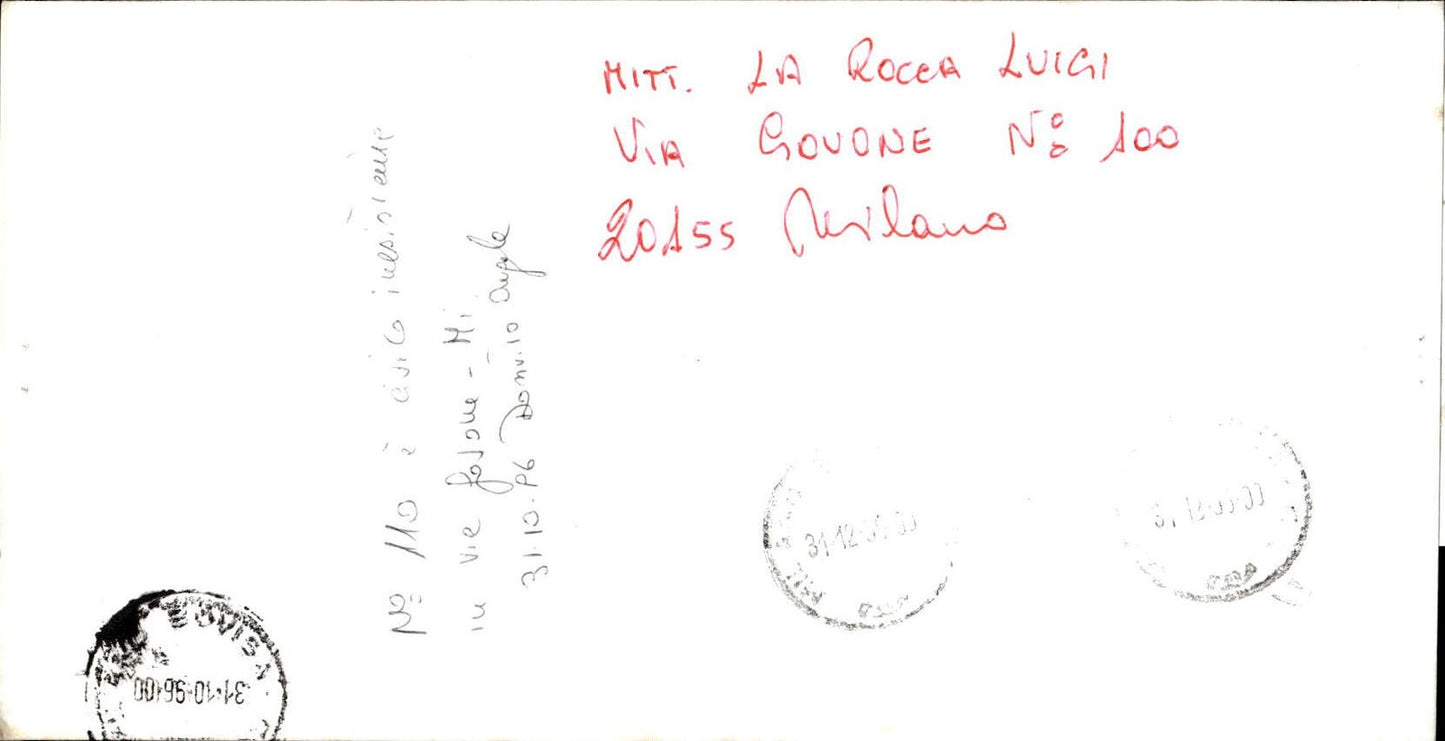 MITT. LA ROCCA LUIGI
VIA GOVONE N° 100
20155 Milano
N° 110 è civico inesistente
in via Govone - Mi
31.10.96 Angela
BOVISA
31·10·96·00
31·12